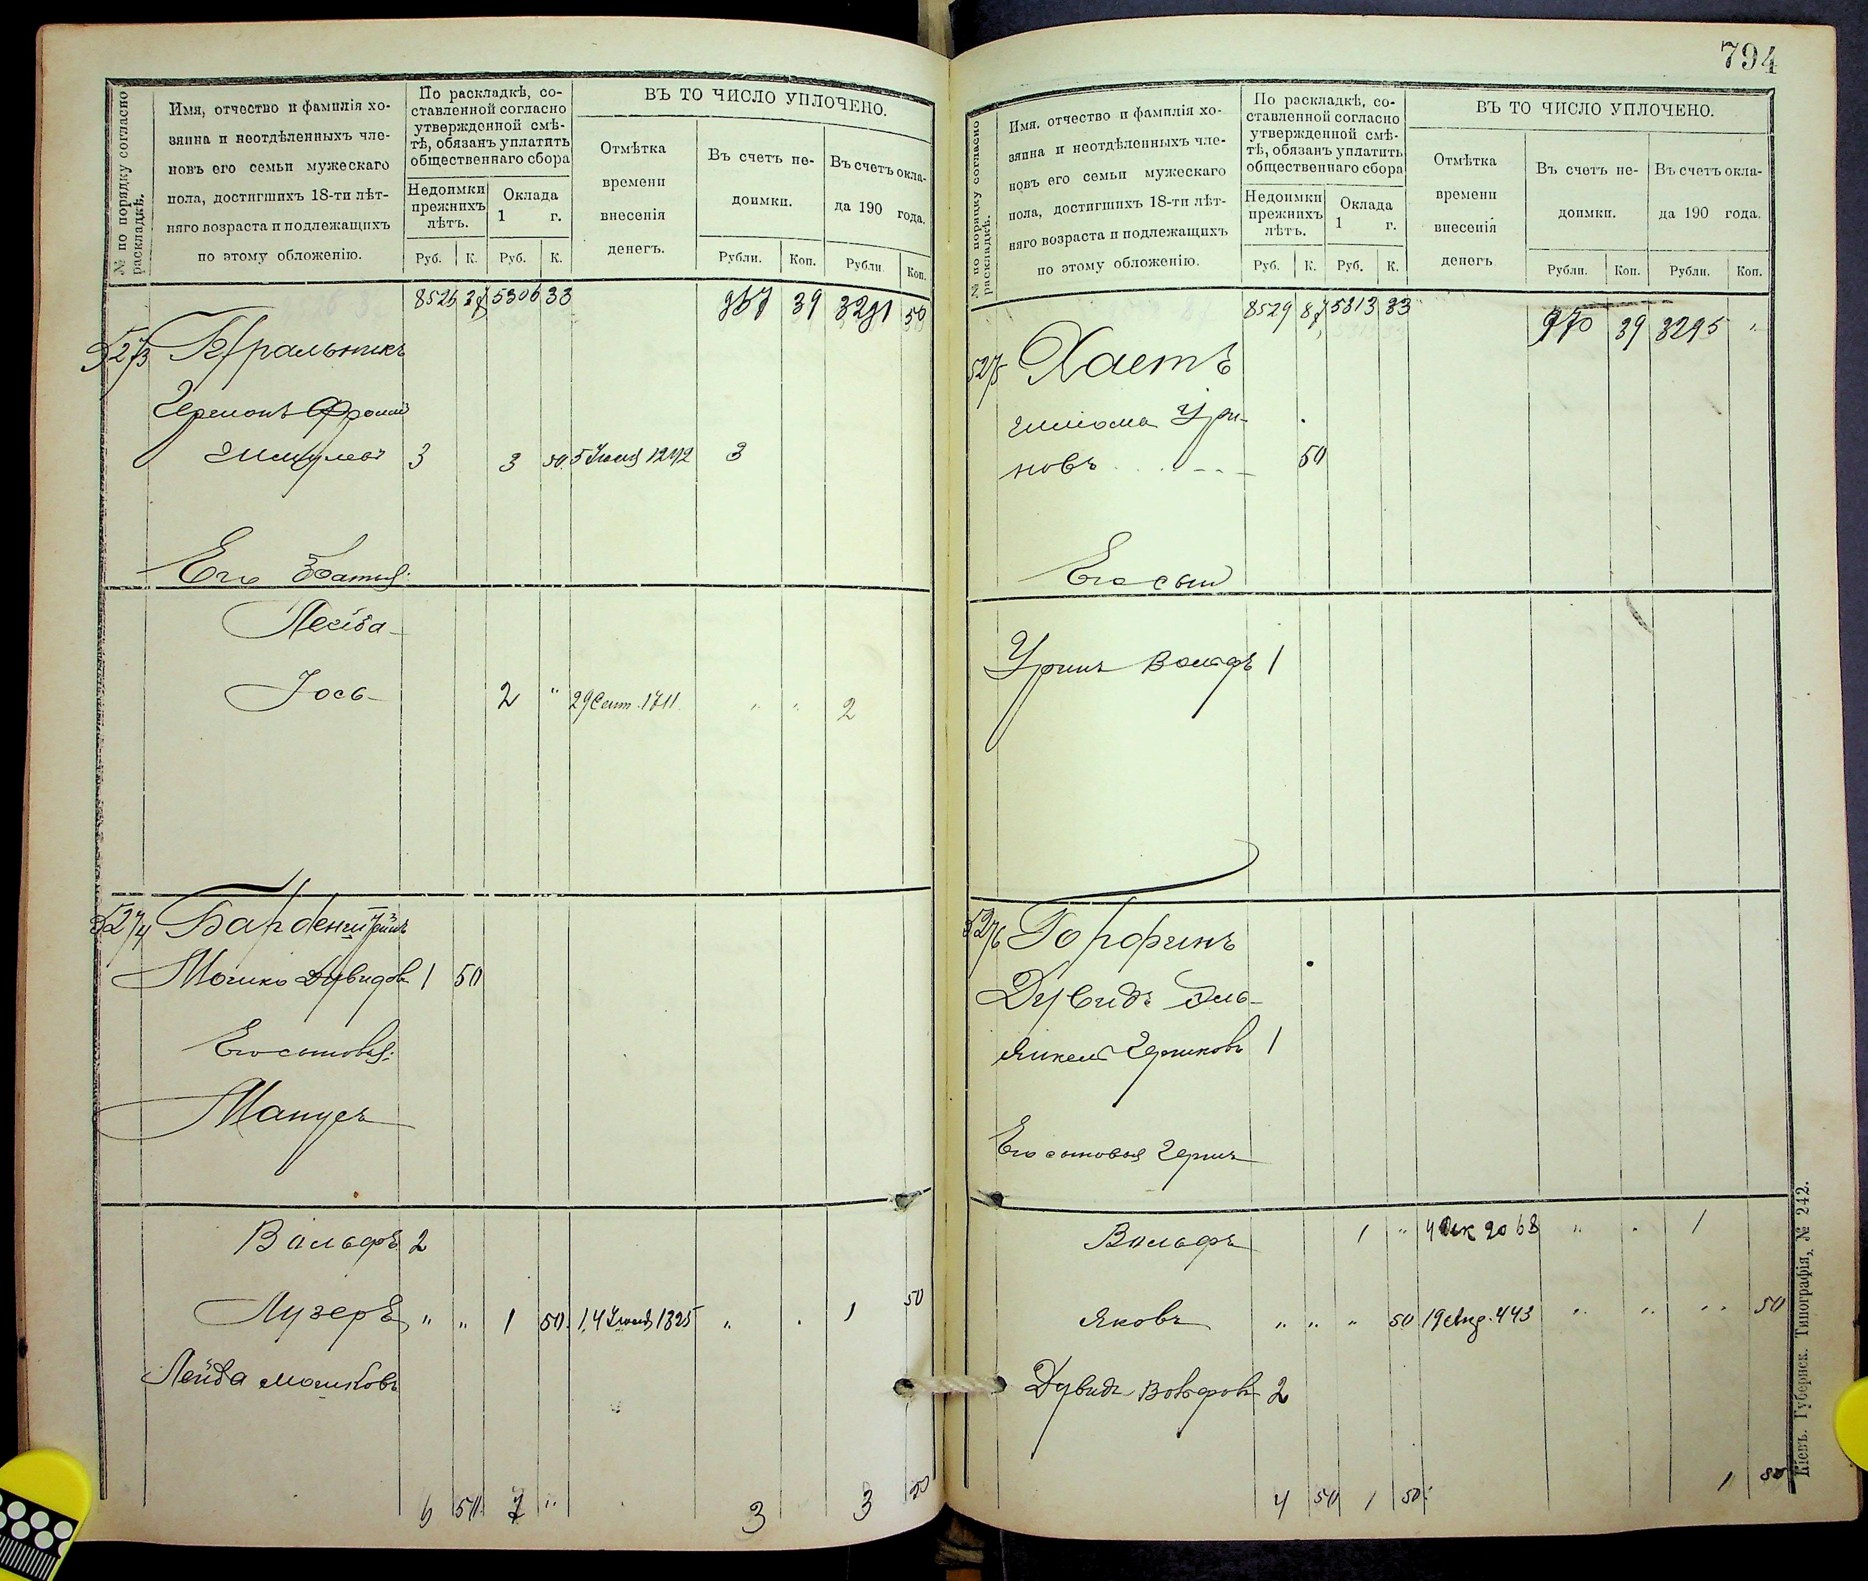 794
№ по порядку согласно раскладкѣ.
Имя, отчество и фамилія хо-
зяина и неотдѣленныхъ чле-
новъ его семьи мужескаго
пола, достигшихъ 18-ти лѣт-
няго возраста и подлежащихъ
по этому обложенію.
По раскладкѣ, со-
ставленной согласно
утвержденной смѣ-
тѣ, обязанъ уплатить
общественнаго сбора
Недоимки прежнихъ лѣтъ.
Оклада 1 г.
Руб. К. Руб. К.
ВЪ ТО ЧИСЛО УПЛОЧЕНО.
Отмѣтка
времени
внесенія
денегъ.
Въ счетъ не-
доимки.
Въ счетъ окла-
да 190 года.
Рубли. Коп. Рубли. Коп.
5306 33 39 3291 50
5273
3 3 50 3
Его братья:
Лейба
Іось 2 " 29 Сент. 1711 " " 2
5274
Мошко Дувидов 1 50
Его сыновья:
Манусъ
Вольфъ 2
Лузеръ " " 1 50 14 1325 " . 1 50
Лейба Мошковъ
6 50 7 " 3 3 50
№ по порядку согласно раскладкѣ.
Имя, отчество и фамилія хо-
зяина и неотдѣленныхъ чле-
новъ его семьи мужескаго
пола, достигшихъ 18-ти лѣт-
няго возраста и подлежащихъ
по этому обложенію.
По раскладкѣ, со-
ставленной согласно
утвержденной смѣ-
тѣ, обязанъ уплатить
общественнаго сбора
Недоимки прежнихъ лѣтъ.
Оклада 1 г.
Руб. К. Руб. К.
ВЪ ТО ЧИСЛО УПЛОЧЕНО.
Отмѣтка
времени
внесенія
денегъ
Въ счетъ не-
доимки.
Въ счетъ окла-
да 190 года.
Рубли. Коп. Рубли. Коп.
8529 87 5313 33 970 39 3295 "
5275 Хаетъ
Шлiома Ури-
новъ 50
Его сын
Уринъ Вольфъ 1
5276 Горфинъ
Дувидъ Эль-
Янкель Гершковъ 1
Его сыновья Гершъ
Вольфъ 1 " 4 Дек 2068 " . 1
Яковъ " " " 50 19 Авг. 443 " " " 50
Дувидъ Вольфовъ 2
4 50 1 50 1 50
Кіевъ. Губернск. Типографія, № 242.